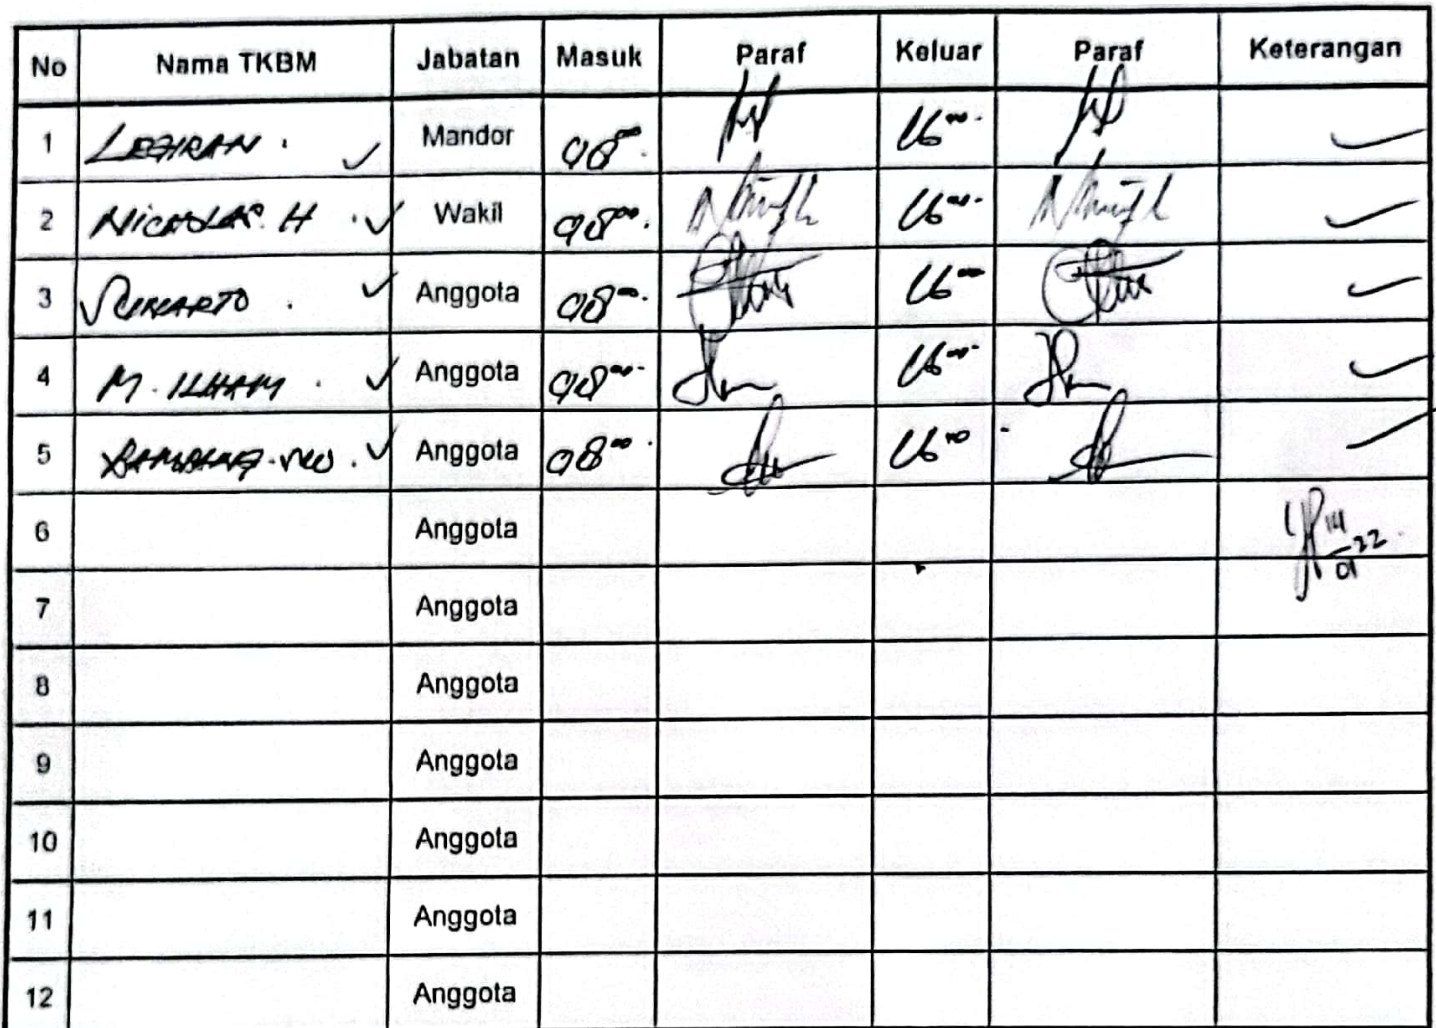 No Nama TKBM Jabatan Masuk Paraf Keluar Paraf Keterangan
1 LEGIRAN. Mandor 08⁰⁰. 16⁰⁰.
2 NICHOLAS. H. Wakil 08⁰⁰. 16⁰⁰.
3 Anggota 08⁰⁰. 16⁰⁰
4 M. ILHAM. Anggota 08⁰⁰. 16⁰⁰.
5 Anggota 08⁰⁰. 16⁰⁰
6 Anggota 14/01 22.
7 Anggota
8 Anggota
9 Anggota
10 Anggota
11 Anggota
12 Anggota